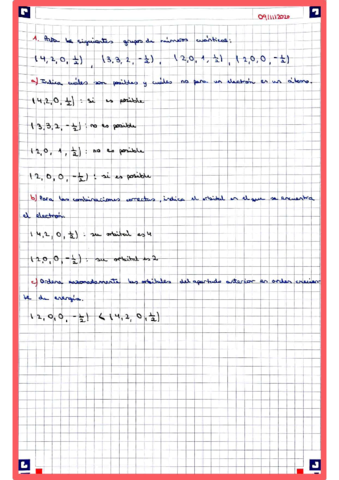 09/11/2020
1. Para los siguientes grupos de números cuánticos:
(4, 2, 0, 1/2), (3, 3, 2, -1/2), (2, 0, 1, 1/2), (2, 0, 0, -1/2)
a) Indica cuáles son posibles y cuáles no para un electrón en un átomo.
(4, 2, 0, 1/2): si es posible
(3, 3, 2, -1/2): no es posible
(2, 0, 1, 1/2): no es posible
(2, 0, 0, -1/2): si es posible
b) Para las combinaciones correctas, indica el orbital en el que se encuentra
el electrón
(4, 2, 0, 1/2): su orbital es 4
(2, 0, 0, -1/2): su orbital es 2
c) Ordena razonadamente los orbitales del apartado anterior en orden crecien
te de energía.
(2, 0, 0, -1/2) < (4, 2, 0, 1/2)